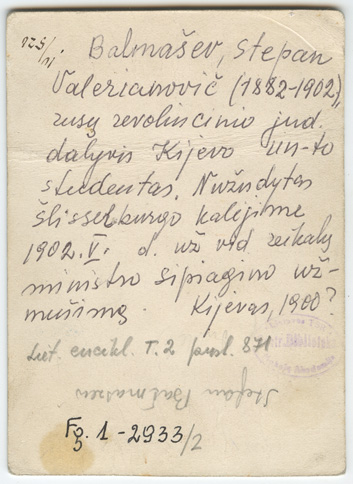 Balmašev, Stepan
Valerianovič (1882-1902),
rusų revoliucinio jud.
dalyvis Kijevo un-to
studentas. Nužudytas
Šlisselburgo kalėjime
1902.V. d. už vid reikalų
ministro Sipiagino už-
mušimą. Kijevas, 1900?
Liet. encikl. T. 2 pusl. 871
Stefan Balmaszew
Fg. 1-2933/2